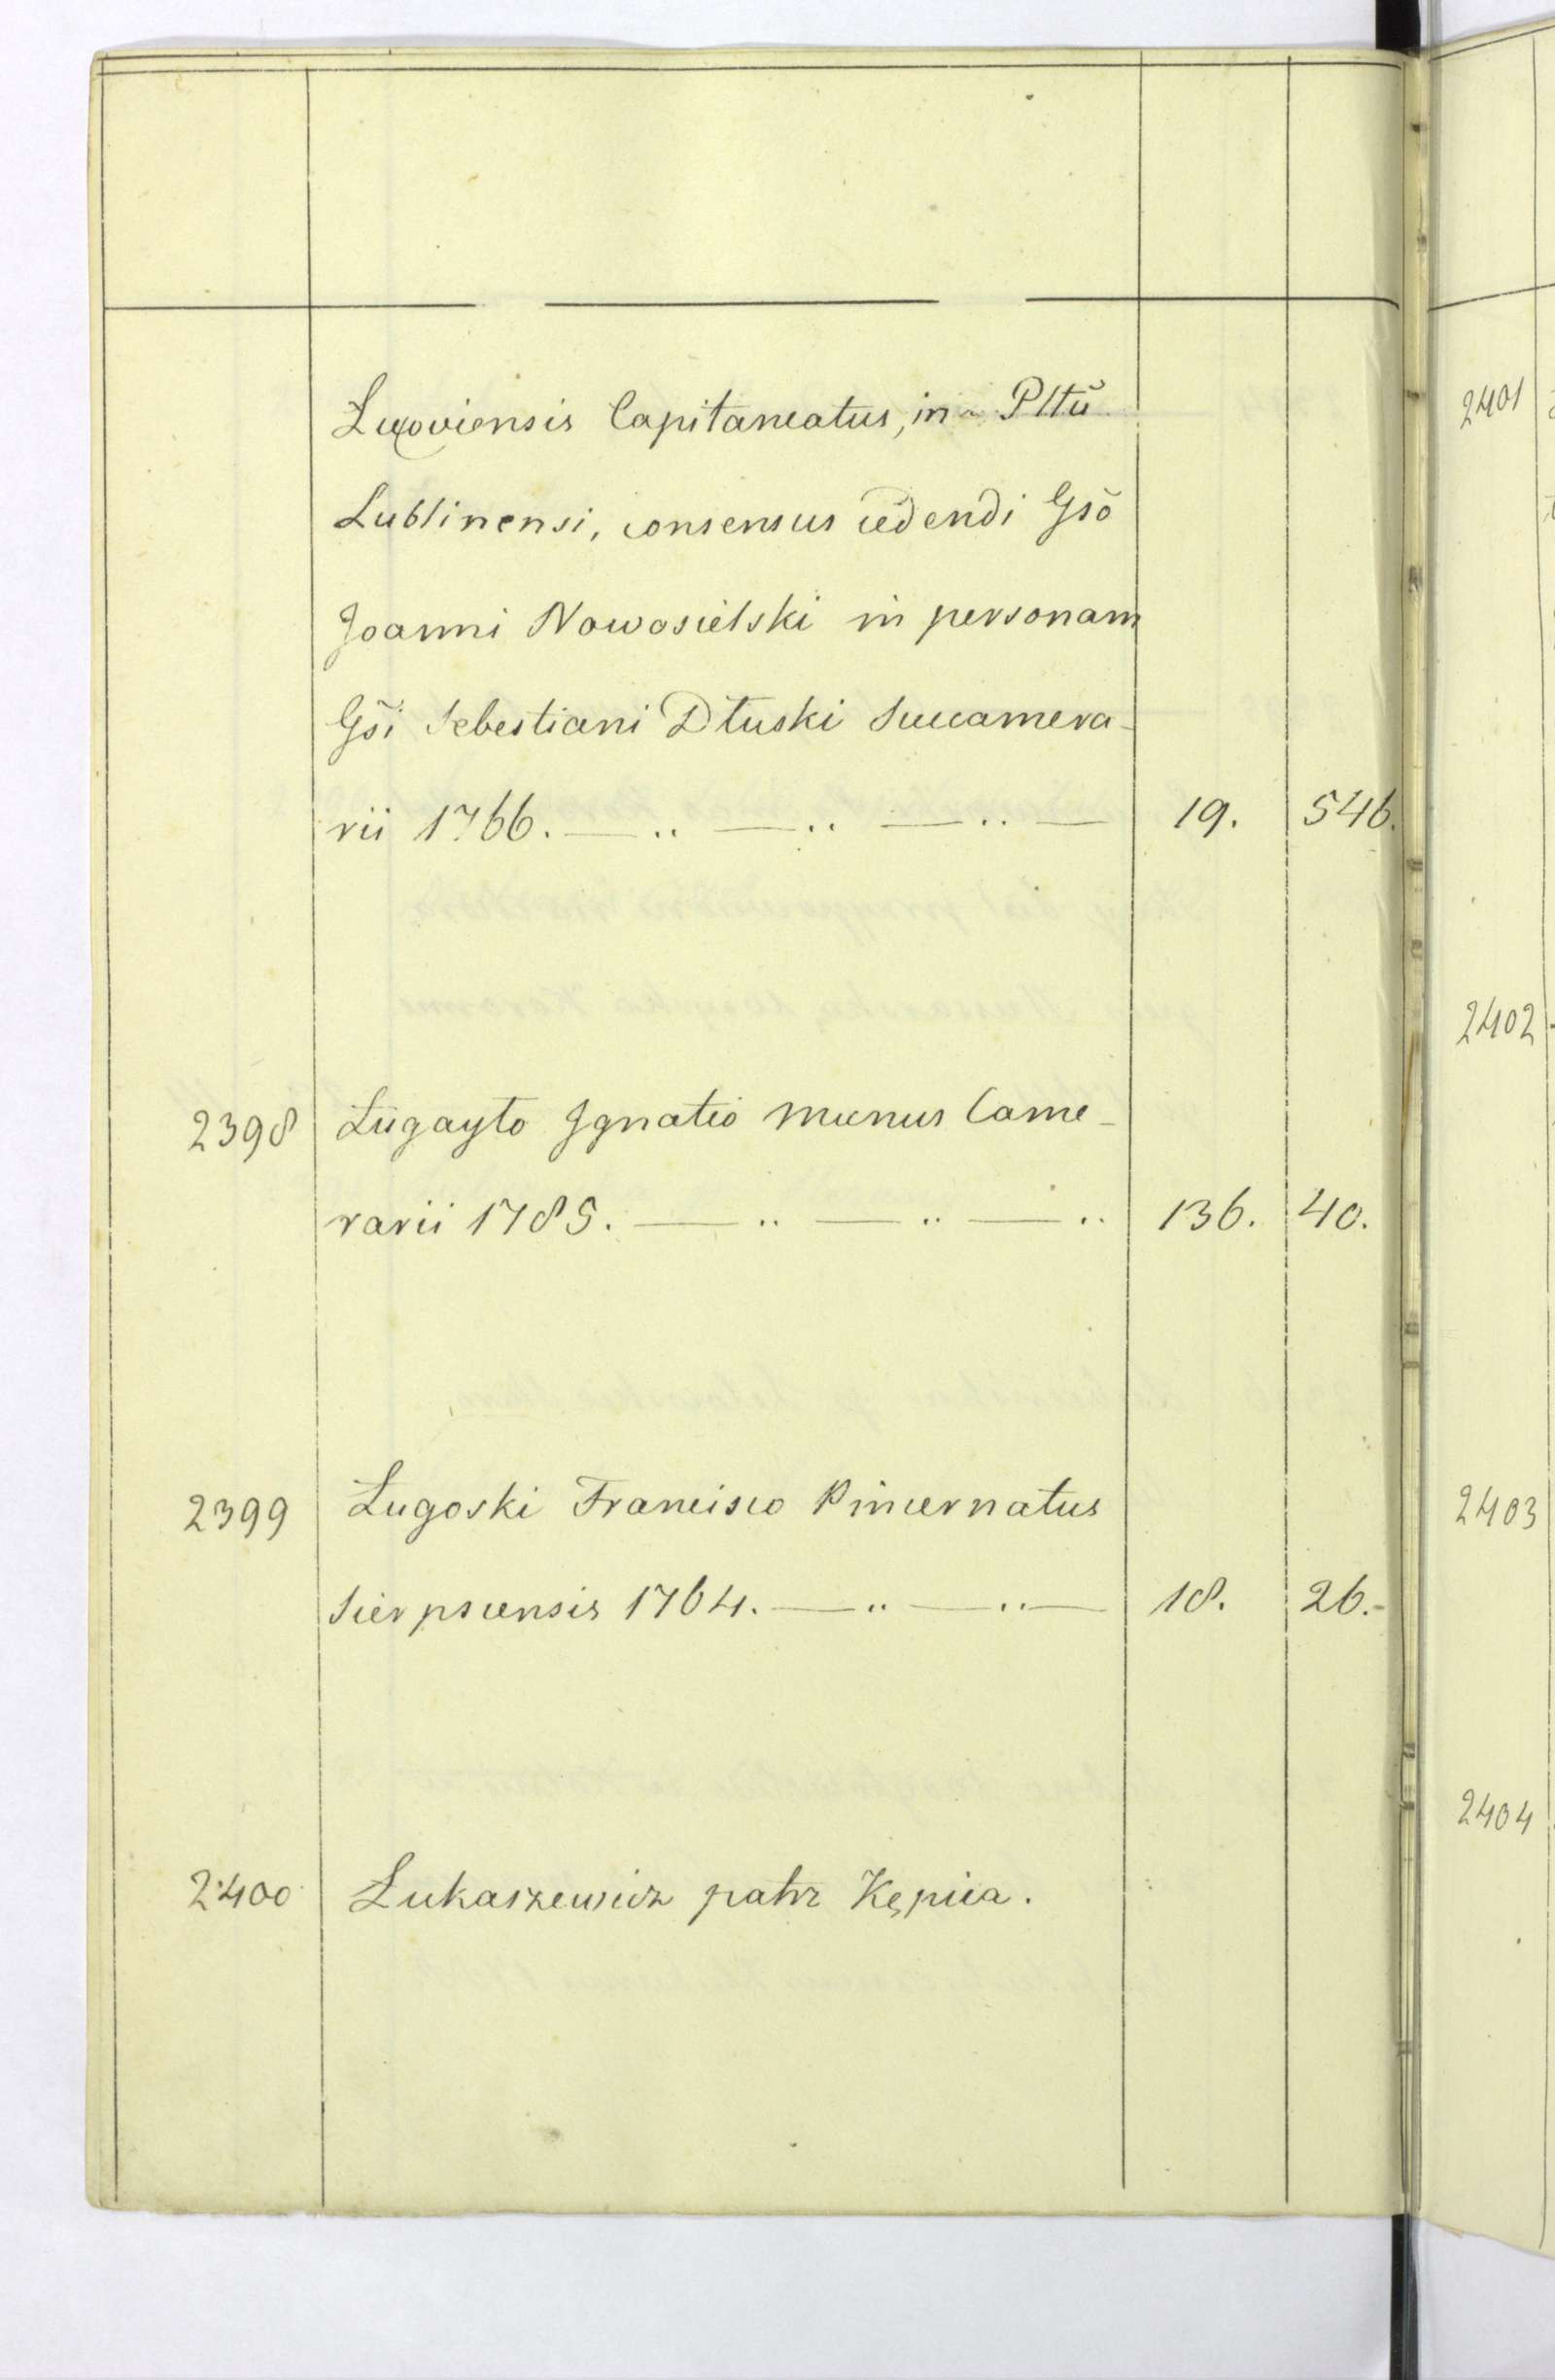 Łukoviensis Capitaneatus, in Plltũ
Lublinensi, consensus cedendi Gsõ
Joanni Nowosielski in personam
Gs̃i Sebestiani Dłuski Succamera-
rii 1766. — .. — .. — .. — 19. 546.
2398 Ługayto Ignatio munus Came-
rarii 1785. — .. — .. — .. 136. 40.
2399 Ługoski Francisco Pincernatus
Sierpscensis 1764. — .. — .. — 18. 26.-
2400 Łukaszewicz patrz Kępica.
2401
2402
2403
2404